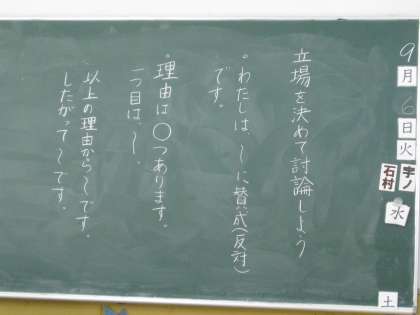 9月6日火
宇ノ
石村
水
土
立場を決めて討論しよう
・わたしは、〜に賛成(反対)
です。
・理由は○つあります。
一つ目は、〜。
・以上の理由から〜です。
したがって〜です。